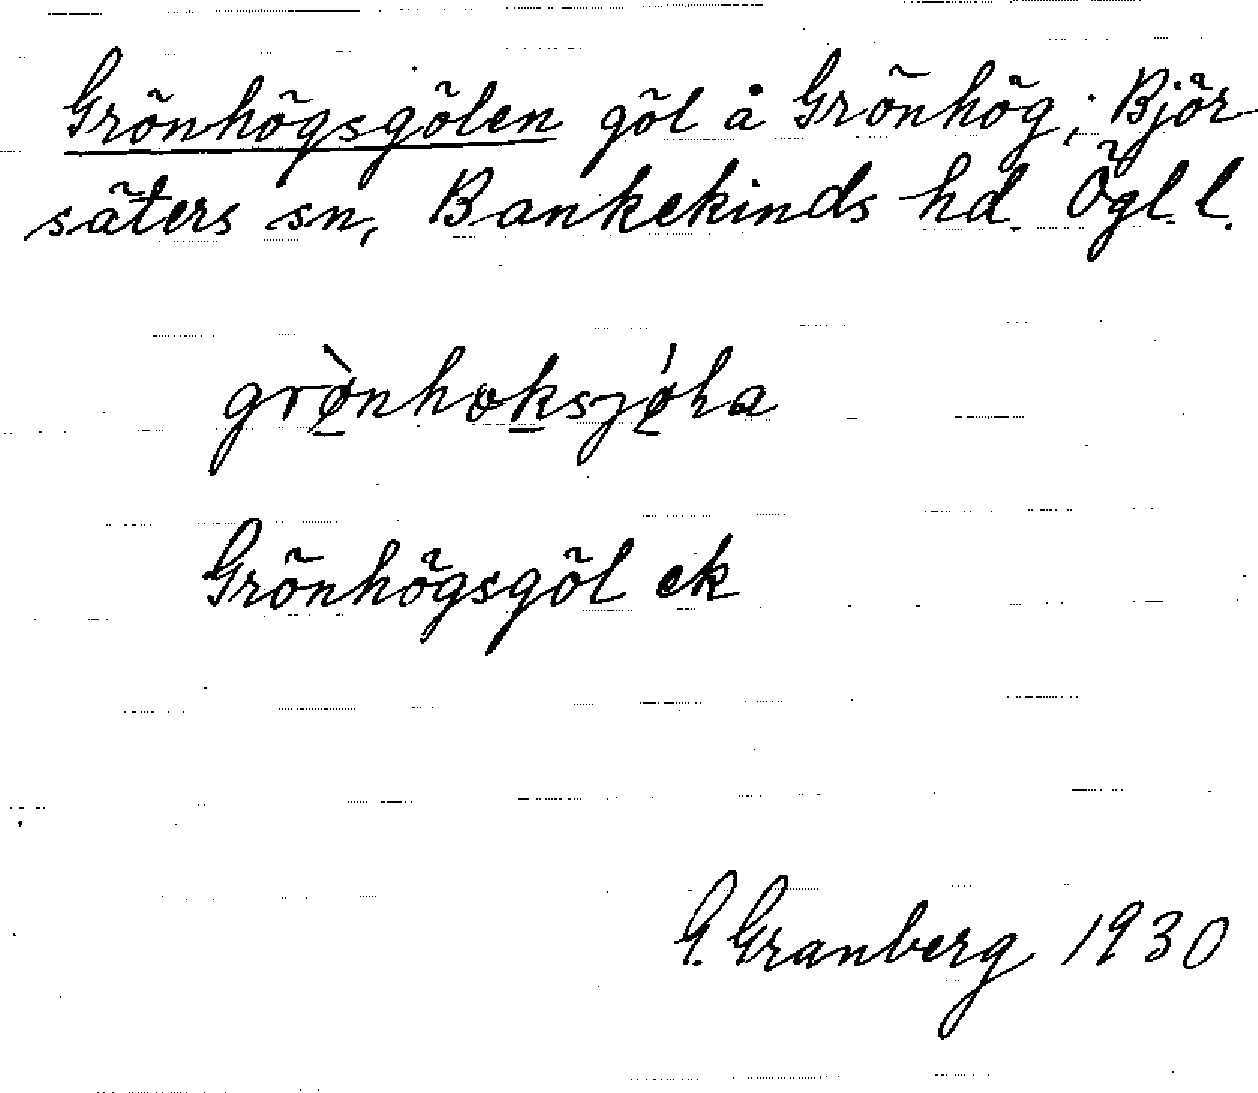 Grönhögsgölen göl å Grönhög, Björ
säters sn, Bankekinds hd. Ögl. l.
Grönhögsgöl ek
G. Granberg 1930